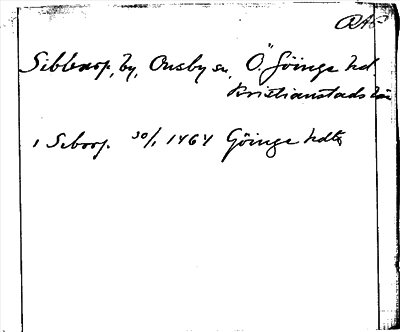 RAP
Sibberup, by, Ousby sn, Ö. Göinge hd
Kristianstads län
1 Seborp. 30/1 1464 Göinge hdtg